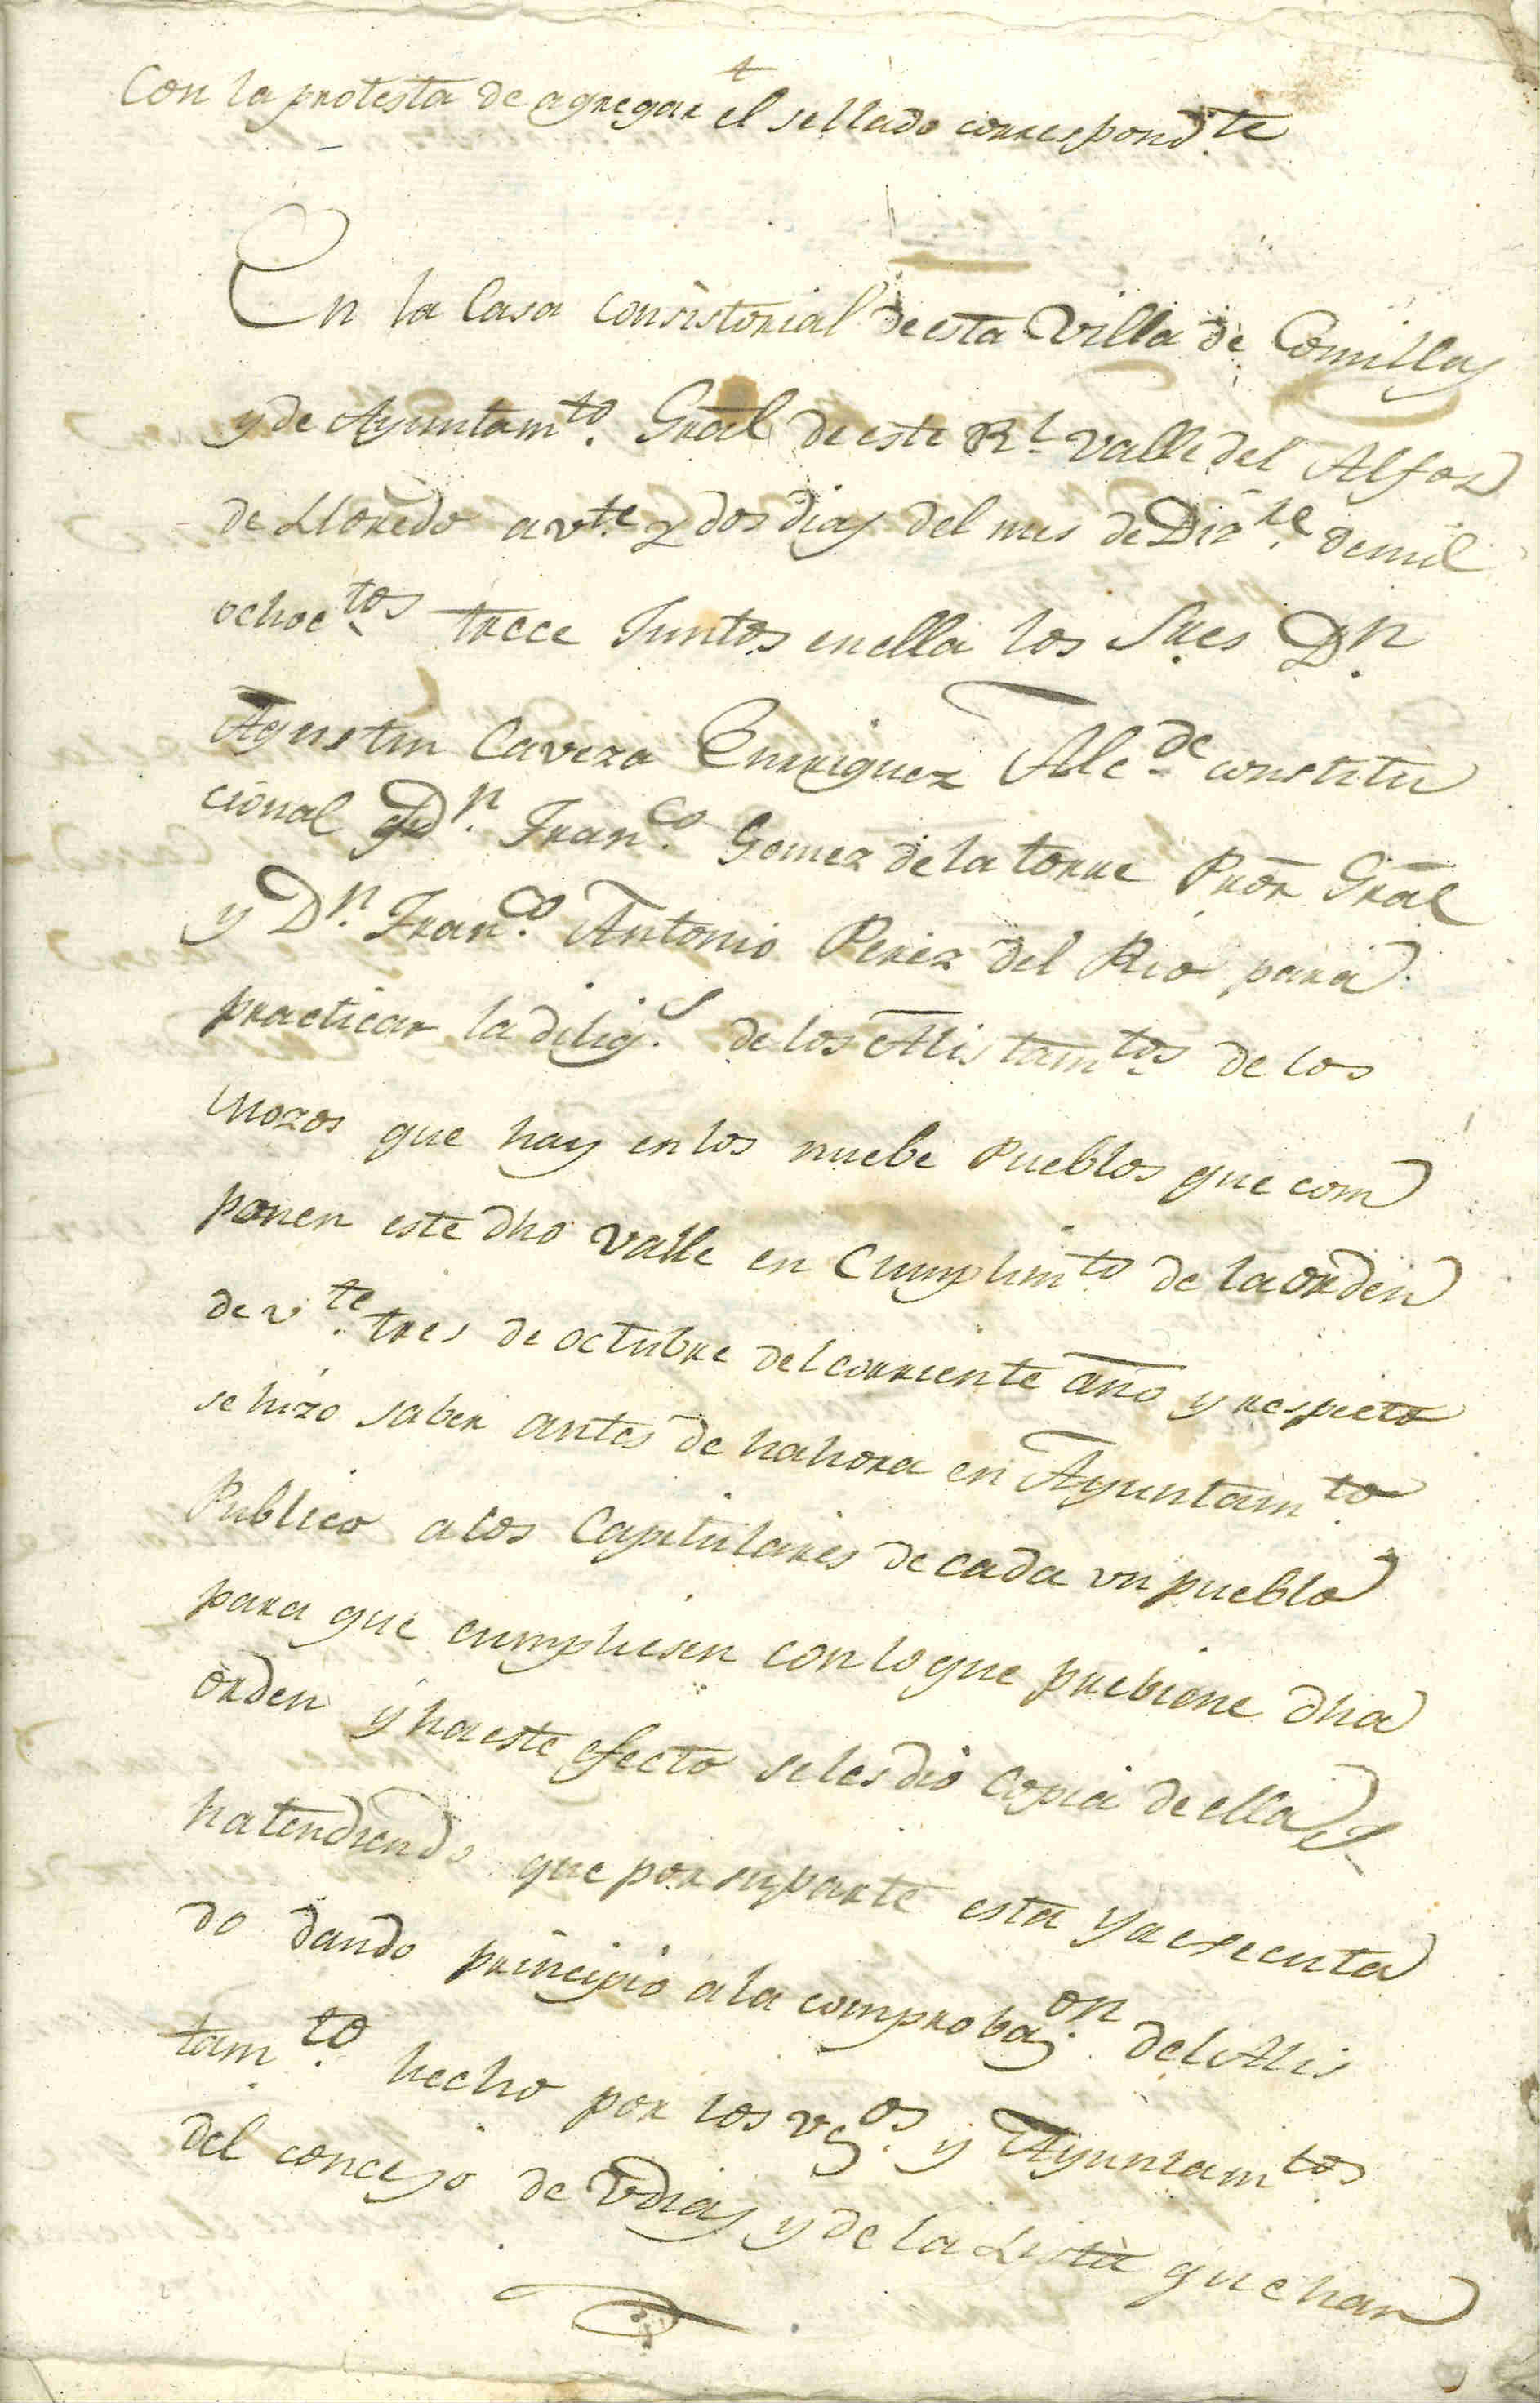 +
Con la protesta de agregar el sellado correspond.te
En la Casa Consistorial de esta Villa de Comillas
y de Ayuntam.to Gral de este Rl Valle del Alfoz
de Lloredo a vte y dos dias del mes de Dizre de mil
ochoc.tos trece Juntos en ella los Sres Dn.
Agustin Caveza Enrriquez Alc.de constitu
cional Dn. Fran.co Gomez de la torre Pror Gral
y Dn. Fran.co Antonio Perez del Rio para
practicar la dilig.s de los Alistam.tos de los
mozos que hay en los nuebe Pueblos que com
ponen este dho Valle en Cumplim.to de la orden
de vte. tres de octubre del corriente año y respecto
se hizo saber antes de hahora en Ayuntam.to
Publico a los Capitulares de cada un pueblo
para que cumpliesen con lo que prebiene dha
orden y ha este efecto se les dio Copia de ella y
hatendiendo que por su parte esta ya executa
do dando principio a la comprobaz.on del Alis
tam.to hecho por los vz.os y Ayuntam.tos
del concejo de Udias y de la Lista que han